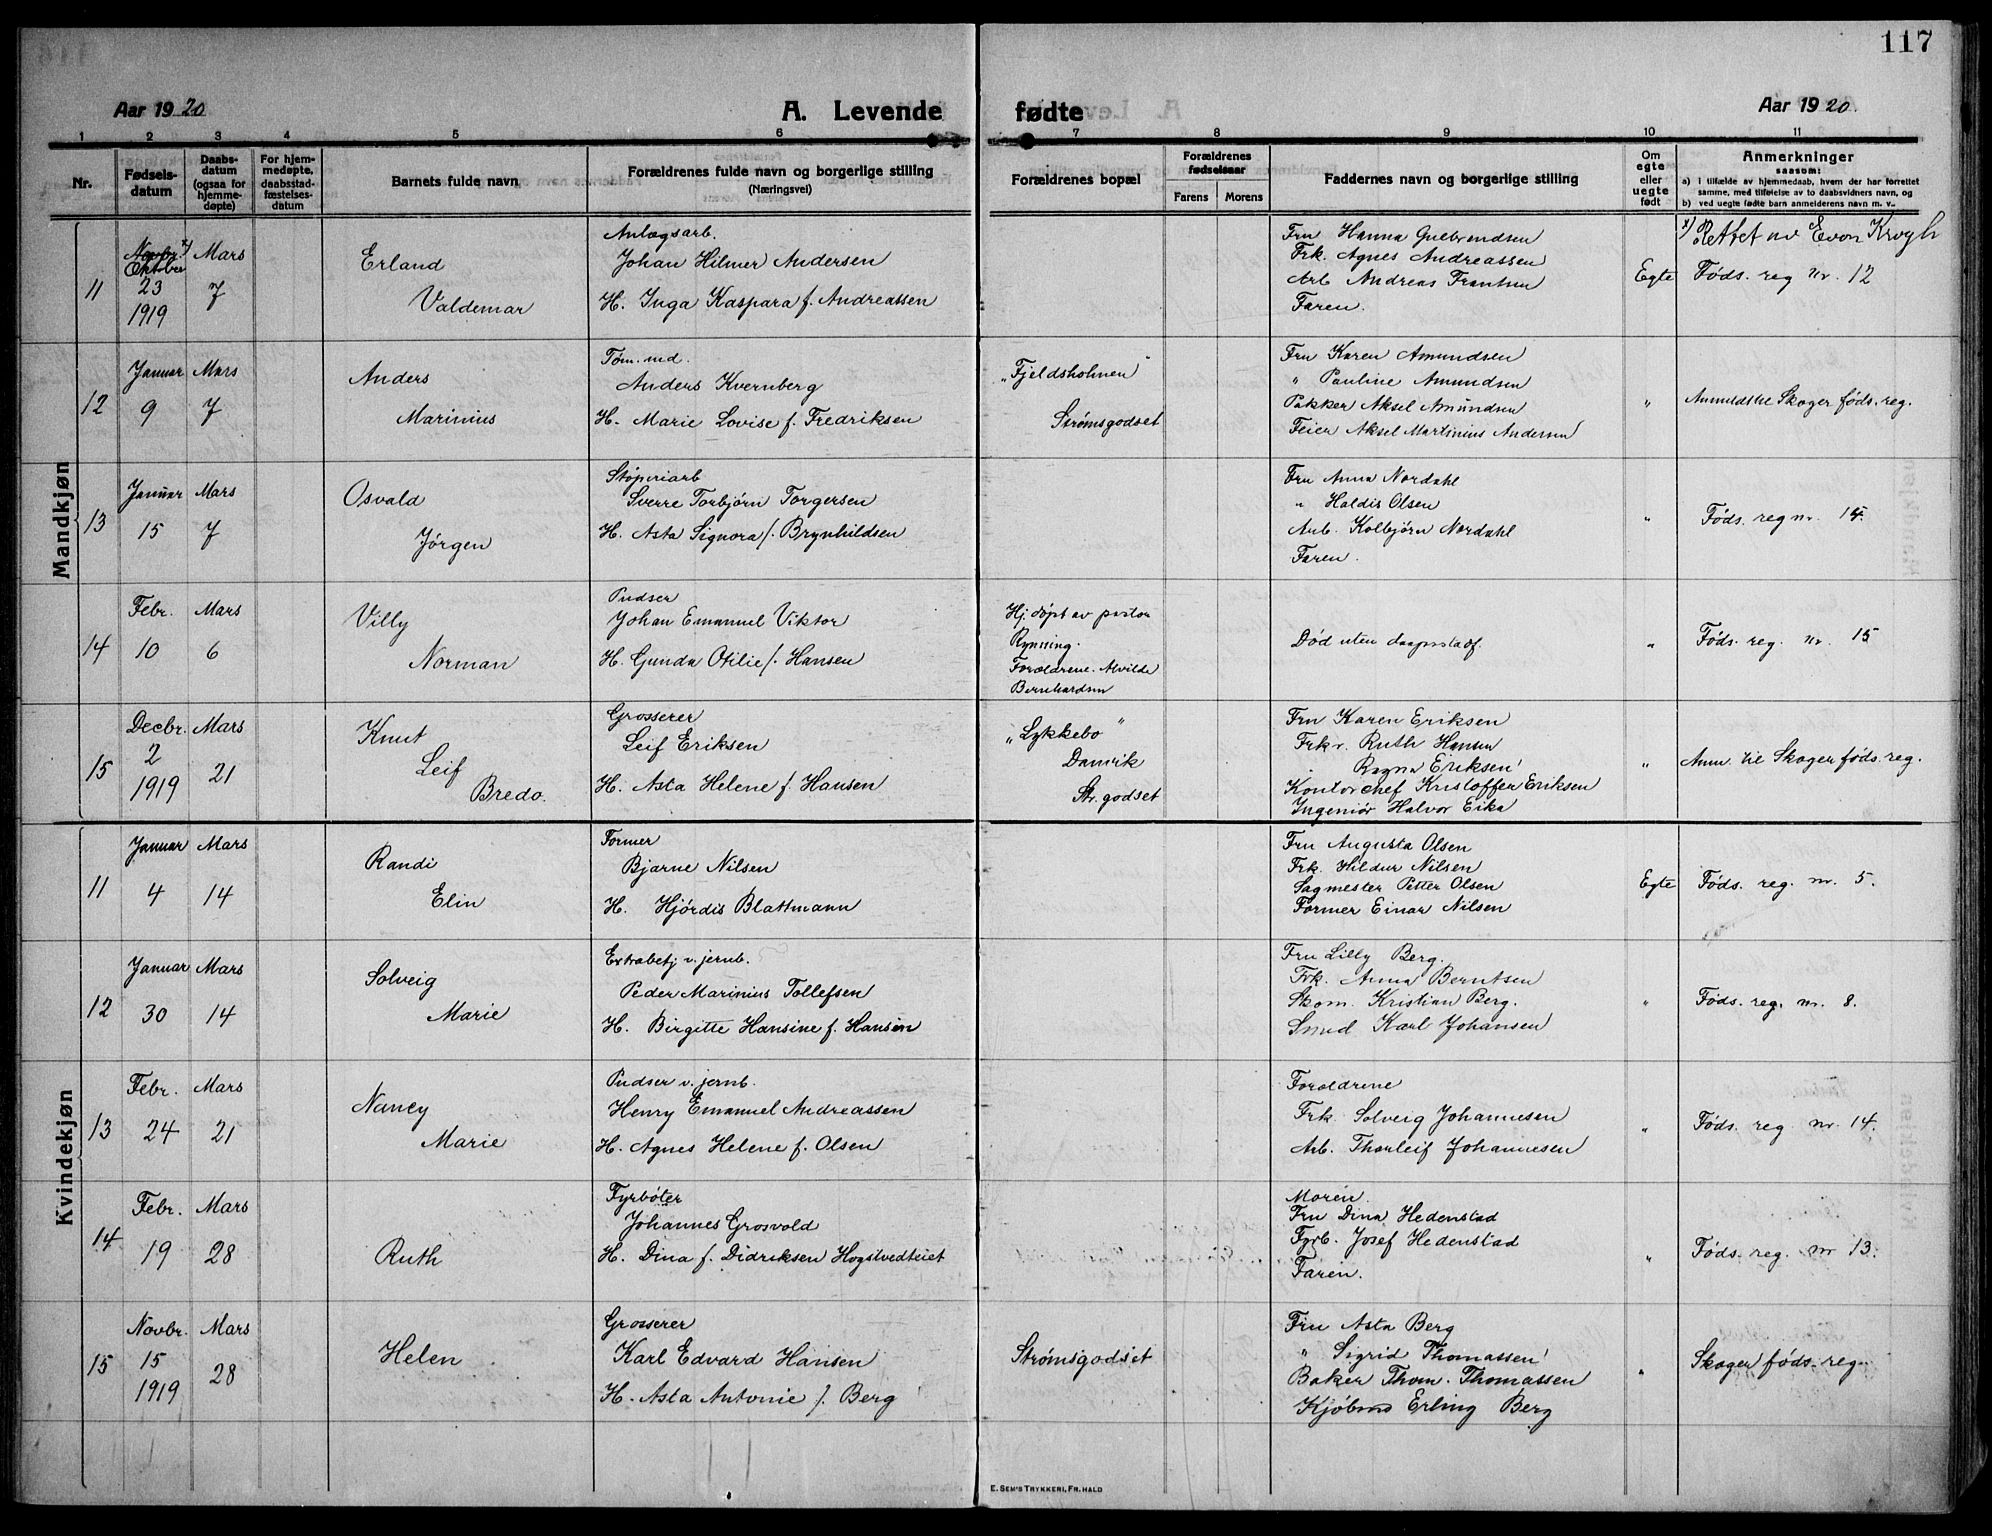 117
Aar 1920
A. Levende
fødte
Aar 1920.
1 2 3 4 5 6 7 8 9 10 11
Nr.
Fødselsdatum
Daabsdatum (ogsaa for hjemmedøpte)
For hjemmedøpte, daabsstadfæstelsesdatum
Barnets fulde navn
Forældrenes fulde navn og borgerlige stilling
(Næringsvei)
Forældrenes bopæl
Forældrenes fødselsaar
Farens Morens
Faddernes navn og borgerlige stilling
Om egte eller uegte født
Anmerkninger
saasom:
a) i tilfælde av hjemmedaab, hvem der har forrettet
samme, med tilføielse av to daabsvidners navn, og
b) ved uegte fødte barn anmelderens navn m. v..
Mandkjøn
11
Novbr. x)
Oktober
23
1919
Mars
7
Erland
Valdemar
Anlægsarb.
Johan Hilmer Andersen
H. Inga Kaspara f. Andreassen
Fru Hanna Gulbrandsen
Frk. Agnes Andreassen
Arb Andreas Frantsen
Faren.
Egte
x) Rettet av Evon Krogh
Føds. reg nr. 12
12
Januar
9
Mars
7
Anders
Marinius
Tøm.md.
Anders Kvernberg
H. Marie Lovise f. Fredriksen
"Fjeldsholmen"
Strømsgodset
Fru Karen Amundsen
" Pauline Amundsen
Pakker Aksel Amundsen
Feier Aksel Martinius Andersen
"
Anmeldt til Skoger føds. reg.
13
Januar
15
Mars
7
Osvald
Jørgen
Støperiarb
Sverre Torbjørn Torgersen
H. Asta Signora f. Brynhildsen
Fru Anna Nordahl
" Haldis Olsen
Arb. Kolbjørn Nordahl
Faren.
"
Føds. reg nr. 14.
14
Febr.
10
Mars
6
Villy
Norman
Pudser
Johan Emanuel Viktor
H. Gunda Otilie f. Hansen
Hj. døpt av pastor
Rynning.
Forældrene. Alvilde
Bernhardsen
Død uten daapsstadf.
"
Føds. reg. nr. 15
15
Decbr.
2
1919
Mars
21
Knut
Leif
Bredo.
Grosserer
Leif Eriksen
H. Asta Helene f. Hansen
"Lykkebo"
Danvik
Str.godset
Fru Karen Eriksen
Frkr. Ruth Hansen
Ragna Eriksen
Kontorchef Kristoffer Eriksen
Ingeniør Halvor Eika
"
Anm. til Skoger føds. reg.
Kvindekjøn
11
Januar
4
Mars
14
Randi
Elin
Former
Bjarne Nilsen
H. Hjórdis Blattmann
Fru Augusta Olsen
Frk. Hildur Nilsen
Sagmester Petter Olsen
Former Einar Nilsen
Egte
Føds. reg. nr. 5.
12
Januar
30
Mars
14
Solveig
Marie
Extrabetj v. jernb.
Peder Marinius Tollefsen
H. Birgitte Hansine f. Hansen
Fru Lilly Berg.
Frk. Anna Berntsen
Skom. Kristian Berg.
Smed Karl Johansen
"
Føds. reg. nr. 8.
13
Febr.
24
Mars
21
Nancy
Marie
Pudser v. jernb.
Henry Emanuel Andreassen
H. Agnes Helene f. Olsen
Forældrene
Frk. Solveig Johannesen
Arb. Thorleif Johannesen
"
Føds. reg. nr. 14.
14
Febr.
19
Mars
28
Ruth
Fyrbøter
Johannes Grosvold
H. Dina f. Didriksen Hogstvedteiet
Moren.
Fru Dina Hedenstad
Fyrb. Josef Hedenstad
Faren.
"
Føds. reg. nr 13.
15
Novbr.
15
1919
Mars
28
Helen
Grosserer
Karl Edvard Hansen
H. Asta Antonie f. Berg
Strømsgodset
Fru Asta Berg
" Sigrid Thomassen
Baker Thom. Thomassen
Kjøbmd Erling Berg
"
Skoger føds. reg.
E. SEM'S TRYKKERI, FR. HALD